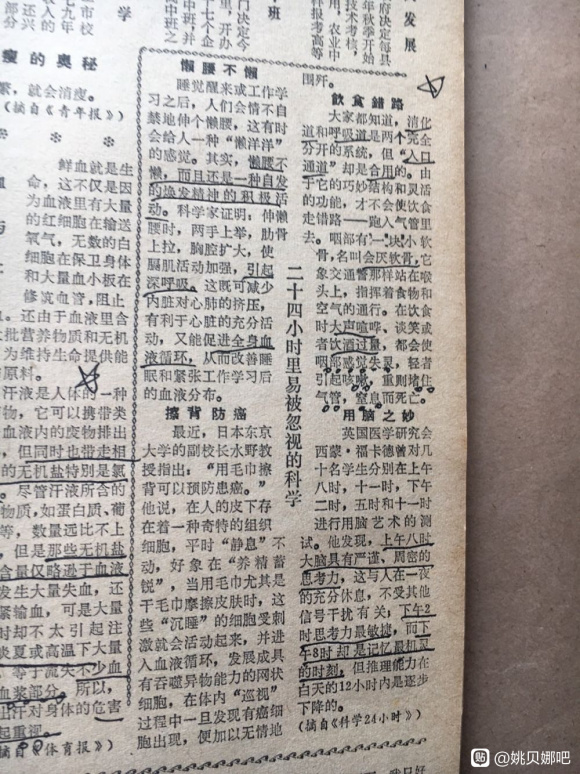 二十四小时里易被忽视的科学
懒腰不懒
睡觉醒来或工作学
习之后，人们会情不自
禁地伸个懒腰，这有时
会给人一种“懒洋洋”
的感觉。其实，懒腰不
懒，而且还是一种自发
的焕发精神的积极活
动。科学家证明：伸懒
腰时，两手上举，肋骨
上拉，胸腔扩大，使
膈肌活动加强，引起
深呼吸，这既可减少
内脏对心肺的挤压，
有利于心脏的充分活
动，又能促进全身血
液循环，从而改善睡
眠和紧张工作学习后
的血液分布。
擦背防癌
最近，日本东京
大学的副校长水野教
授指出：“用毛巾擦
背可以预防患癌。”
他说，在人的皮下存
在着一种奇特的组织
细胞，平时“静息”不
动，好象在“养精蓄
锐”，当用毛巾尤其是
干毛巾摩擦皮肤时，这
些“沉睡”的细胞受刺
激就会活动起来，并进
入血液循环，发展成具
有吞噬异物能力的网状
细胞，在体内“巡视”
过程中一旦发现有癌细
胞出现，便加以无情地
围歼。
飲食錯路
大家都知道，消化
道和呼吸道是两个完全
分开的系统，但“入口
通道”却是合用的。由
于它的巧妙结构和灵活
的功能，才不会使饮食
走错路——跑入气管里
去。咽部有一块小软
骨，名叫会厌软骨，它
象交通警那样站在喉
头上，指挥着食物和
空气的通行。在饮食
时大声喧哗、谈笑或
者饮酒过量，都会使
咽部感觉失灵，轻者
引起咳嗽，重则堵住
气管，窒息而死亡。
用脑之妙
英国医学研究会
西蒙·福卡德曾对几
十名学生分别在上午
八时，十一时，下午
二时，五时和十一时
进行用脑艺术的测
试。他发现，上午八时
大脑具有严谨、周密的
思考力，这与人在一夜
的充分休息，不受其他
信号干扰有关；下午2
时思考力最敏捷，而下
午8时却是记忆最机灵
的时刻，但推理能力在
白天的12小时内是逐步
下降的。
（摘自《科学24小时》）
瘦的奥秘
就会消瘦。
（摘自《青年报》）
鲜血就是生
命，这不仅是因
为血液里有大量
的红细胞在输送
氧气，无数的白
细胞在保卫身体
和大量血小板在
修筑血管，阻止
还由于血液里含
批营养物质和无机
为维持生命提供能
原料。
汗液是人体的一种
物，它可以携带类
血液内的废物排出
但同时也带走相
的无机盐特别是氯
尽管汗液所含的
物质，如蛋白质、葡
等，数量远比不上
但是那些无机盐
含量仅略逊于血液
发生大量失血，还
紧输血，可是大量
时却不太引起注
炎夏或高温下大量
等于流失不少血
血浆部分。所以，
出汗对身体的危害
起重视。
（摘自《体育报》）
贴 @姚贝娜吧